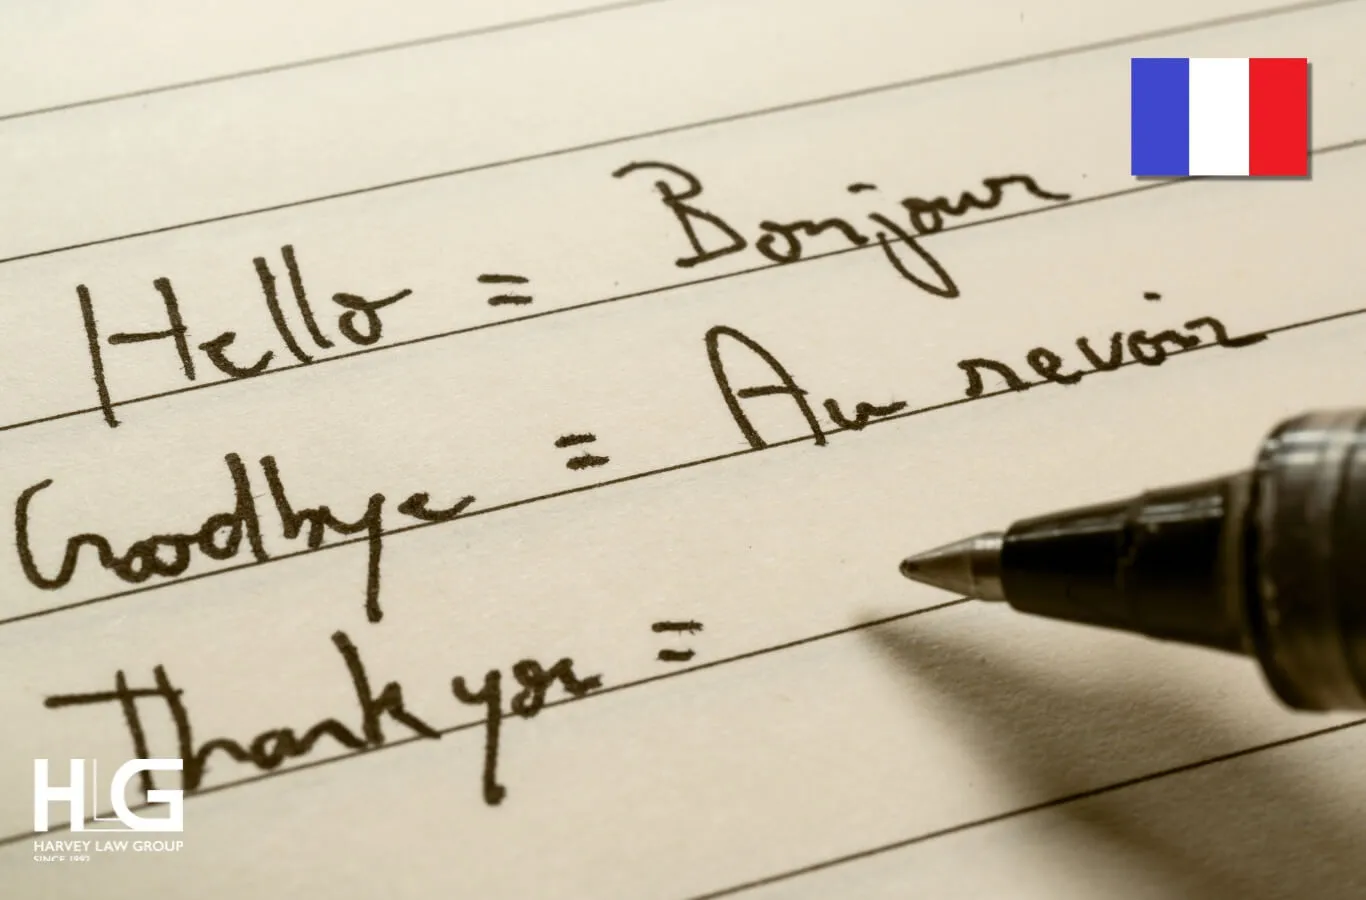 Hello = Bonjour
Goodbye = Au revoir
Thank you =
HLG
HARVEY LAW GROUP
SINCE 1992